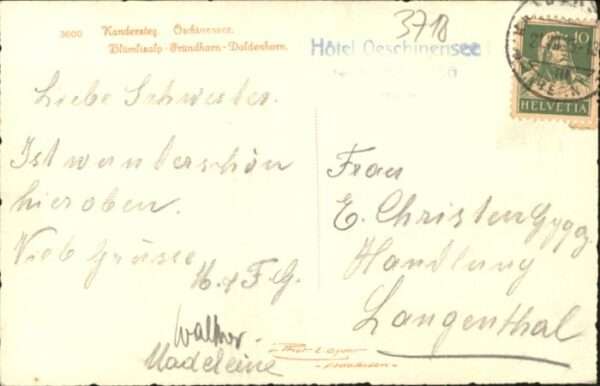 3718
3600 Kandersteg. Öschinensee.
Blümlisalp-Fründhorn-Doldenhorn.
Hôtel Oeschinensee
10
HELVETIA
Liebe Schwester.
Ist wunderschön
hieroben.
Viele Grüsse
H. & F. G.
Walter.
Madeleine
Frau
E. Christen Gygg.
Handlung
Langenthal